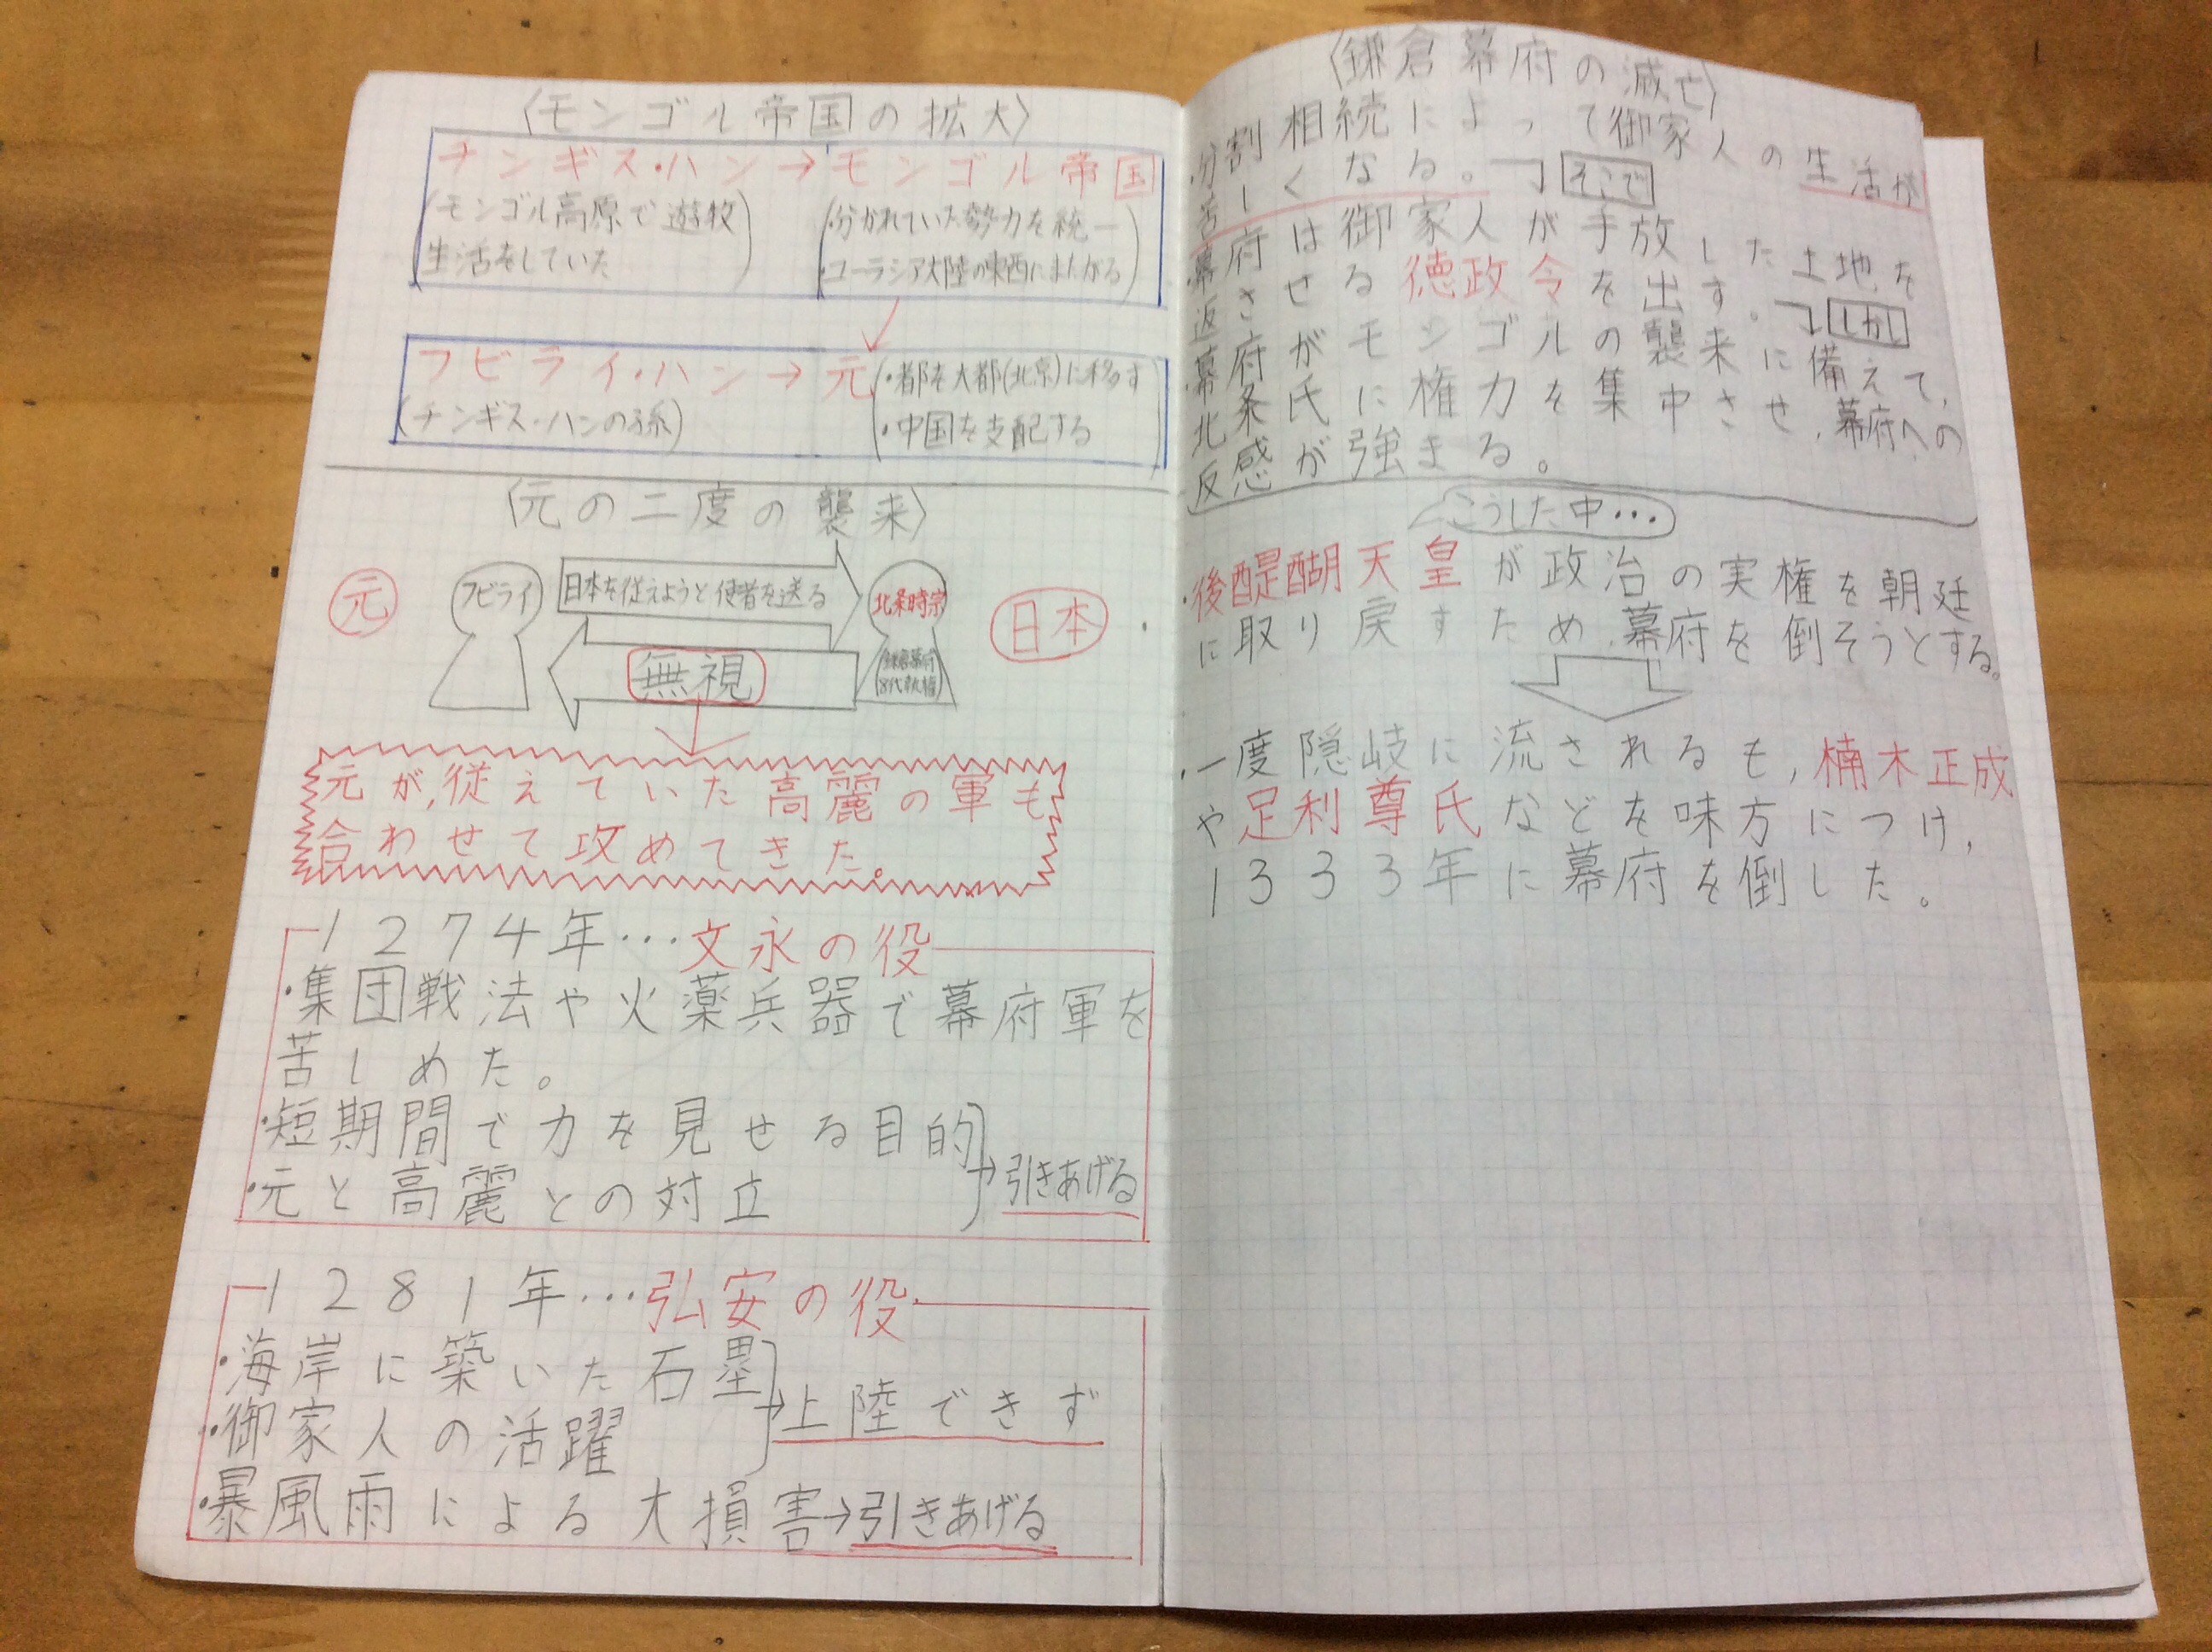 〈モンゴル帝国の拡大〉
チンギス・ハン→モンゴル帝国
(モンゴル高原で遊牧
生活をしていた)
(・分かれていた勢力を統一
・ユーラシア大陸の東西にまたがる)
フビライ・ハン→元
(チンギス・ハンの孫)
(・都を大都(北京)に移す
・中国を支配する
〈元の二度の襲来〉
元
フビライ
日本を従えようと使者を送る
北条時宗
日本
無視
鎌倉幕府
8代執権
元が,従えていた高麗の軍も
合わせて攻めてきた。
1274年…文永の役
・集団戦法や火薬兵器で幕府軍を
苦しめた。
・短期間で力を見せる目的
・元と高麗との対立
→引きあげる
1281年…弘安の役
・海岸に築いた石塁
・御家人の活躍
→上陸できず
・暴風雨による大損害→引きあげる
〈鎌倉幕府の滅亡〉
・分割相続によって御家人の生活が
苦しくなる。 そこで
・幕府は御家人が手放した土地を
返させる徳政令を出す。 しかし
・幕府がモンゴルの襲来に備えて,
北条氏に権力を集中させ,幕府への
反感が強まる。
こうした中…
・後醍醐天皇が政治の実権を朝廷
に取り戻すため,幕府を倒そうとする。
・一度隠岐に流されるも,楠木正成
や足利尊氏などを味方につけ,
1333年に幕府を倒した。